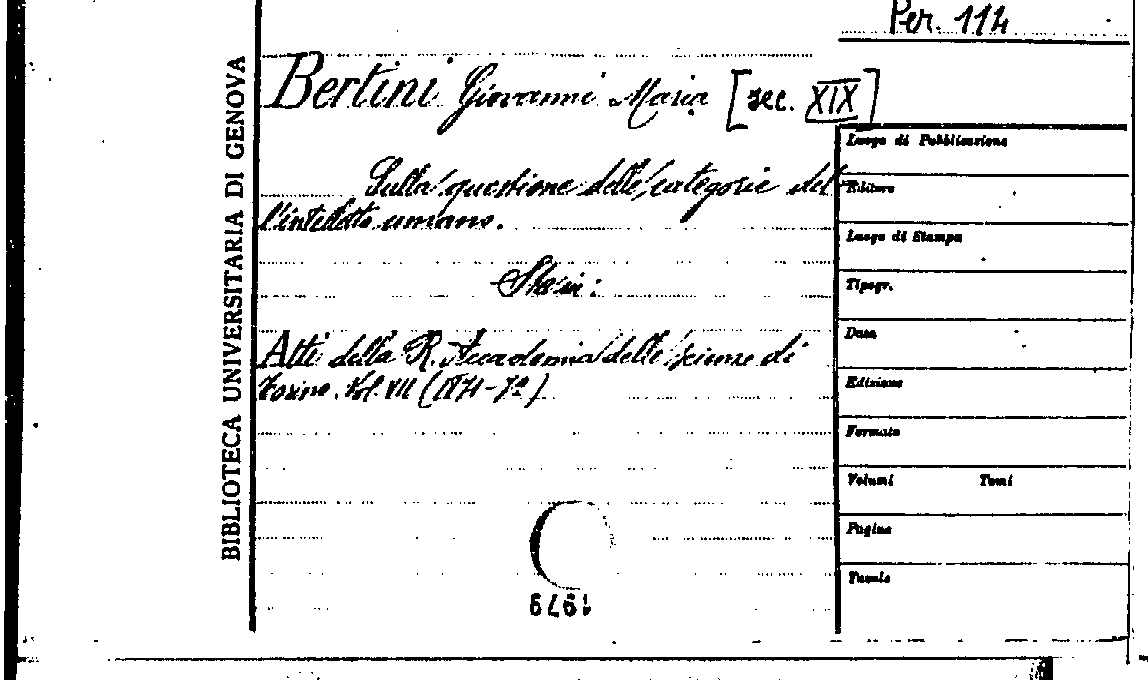 Per. 114
BIBLIOTECA UNIVERSITARIA DI GENOVA
Bertini Giovanni Maria [sec. XIX]
Sulla questione delle categorie del
l'intelletto umano.
Sta in:
Atti della R. Accademia delle scienze di
Torino. Vol. VII (1871-72)
Luogo di Pubblicazione
Editore
Luogo di Stampa
Tipogr.
Data
Edizione
Formato
Volumi Tomi
Pagine
Tavole
1979